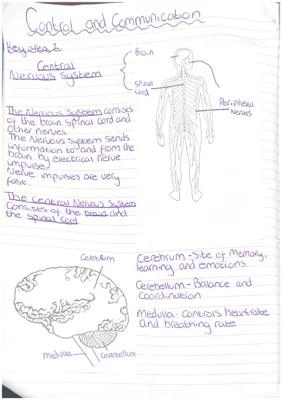 Control and Communication
Key Area 2
Central
Nervous System
Brain
Spinal
cord
Peripheral
Nerves
The Nervous System consists
of the brain spinal cord and
other nerves.
The Nervous System sends
information to and from the
brain by electrical nerve
impulse.
Nerve impulses are very
fast.
The Central Nervous System
Consists of the brain and
the spinal cord
Cerebrum
Medulla
Cerebellum
Cerebrum - Site of Memory,
learning and emotions.
Cerebellum - Balance and
Coordination
Medulla - Controls heartrate
and breathing rate